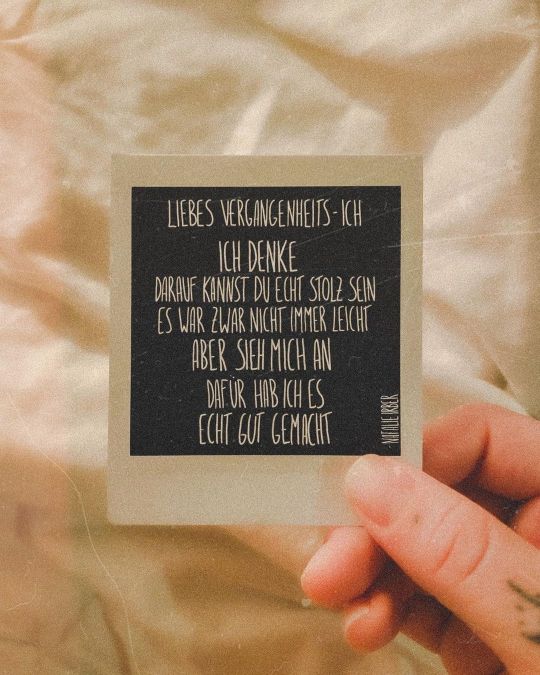 LIEBES VERGANGENHEITS-ICH
ICH DENKE
DARAUF KANNST DU ECHT STOLZ SEIN
ES WAR ZWAR NICHT IMMER LEICHT
ABER SIEH MICH AN
DAFÜR HAB ICH ES
ECHT GUT GEMACHT
-NATALIE IRBER